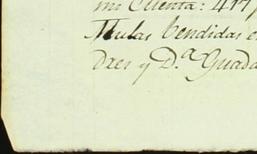 mi Cuenta: 417
Mulas Vendidas e
dres y D.ª Guada